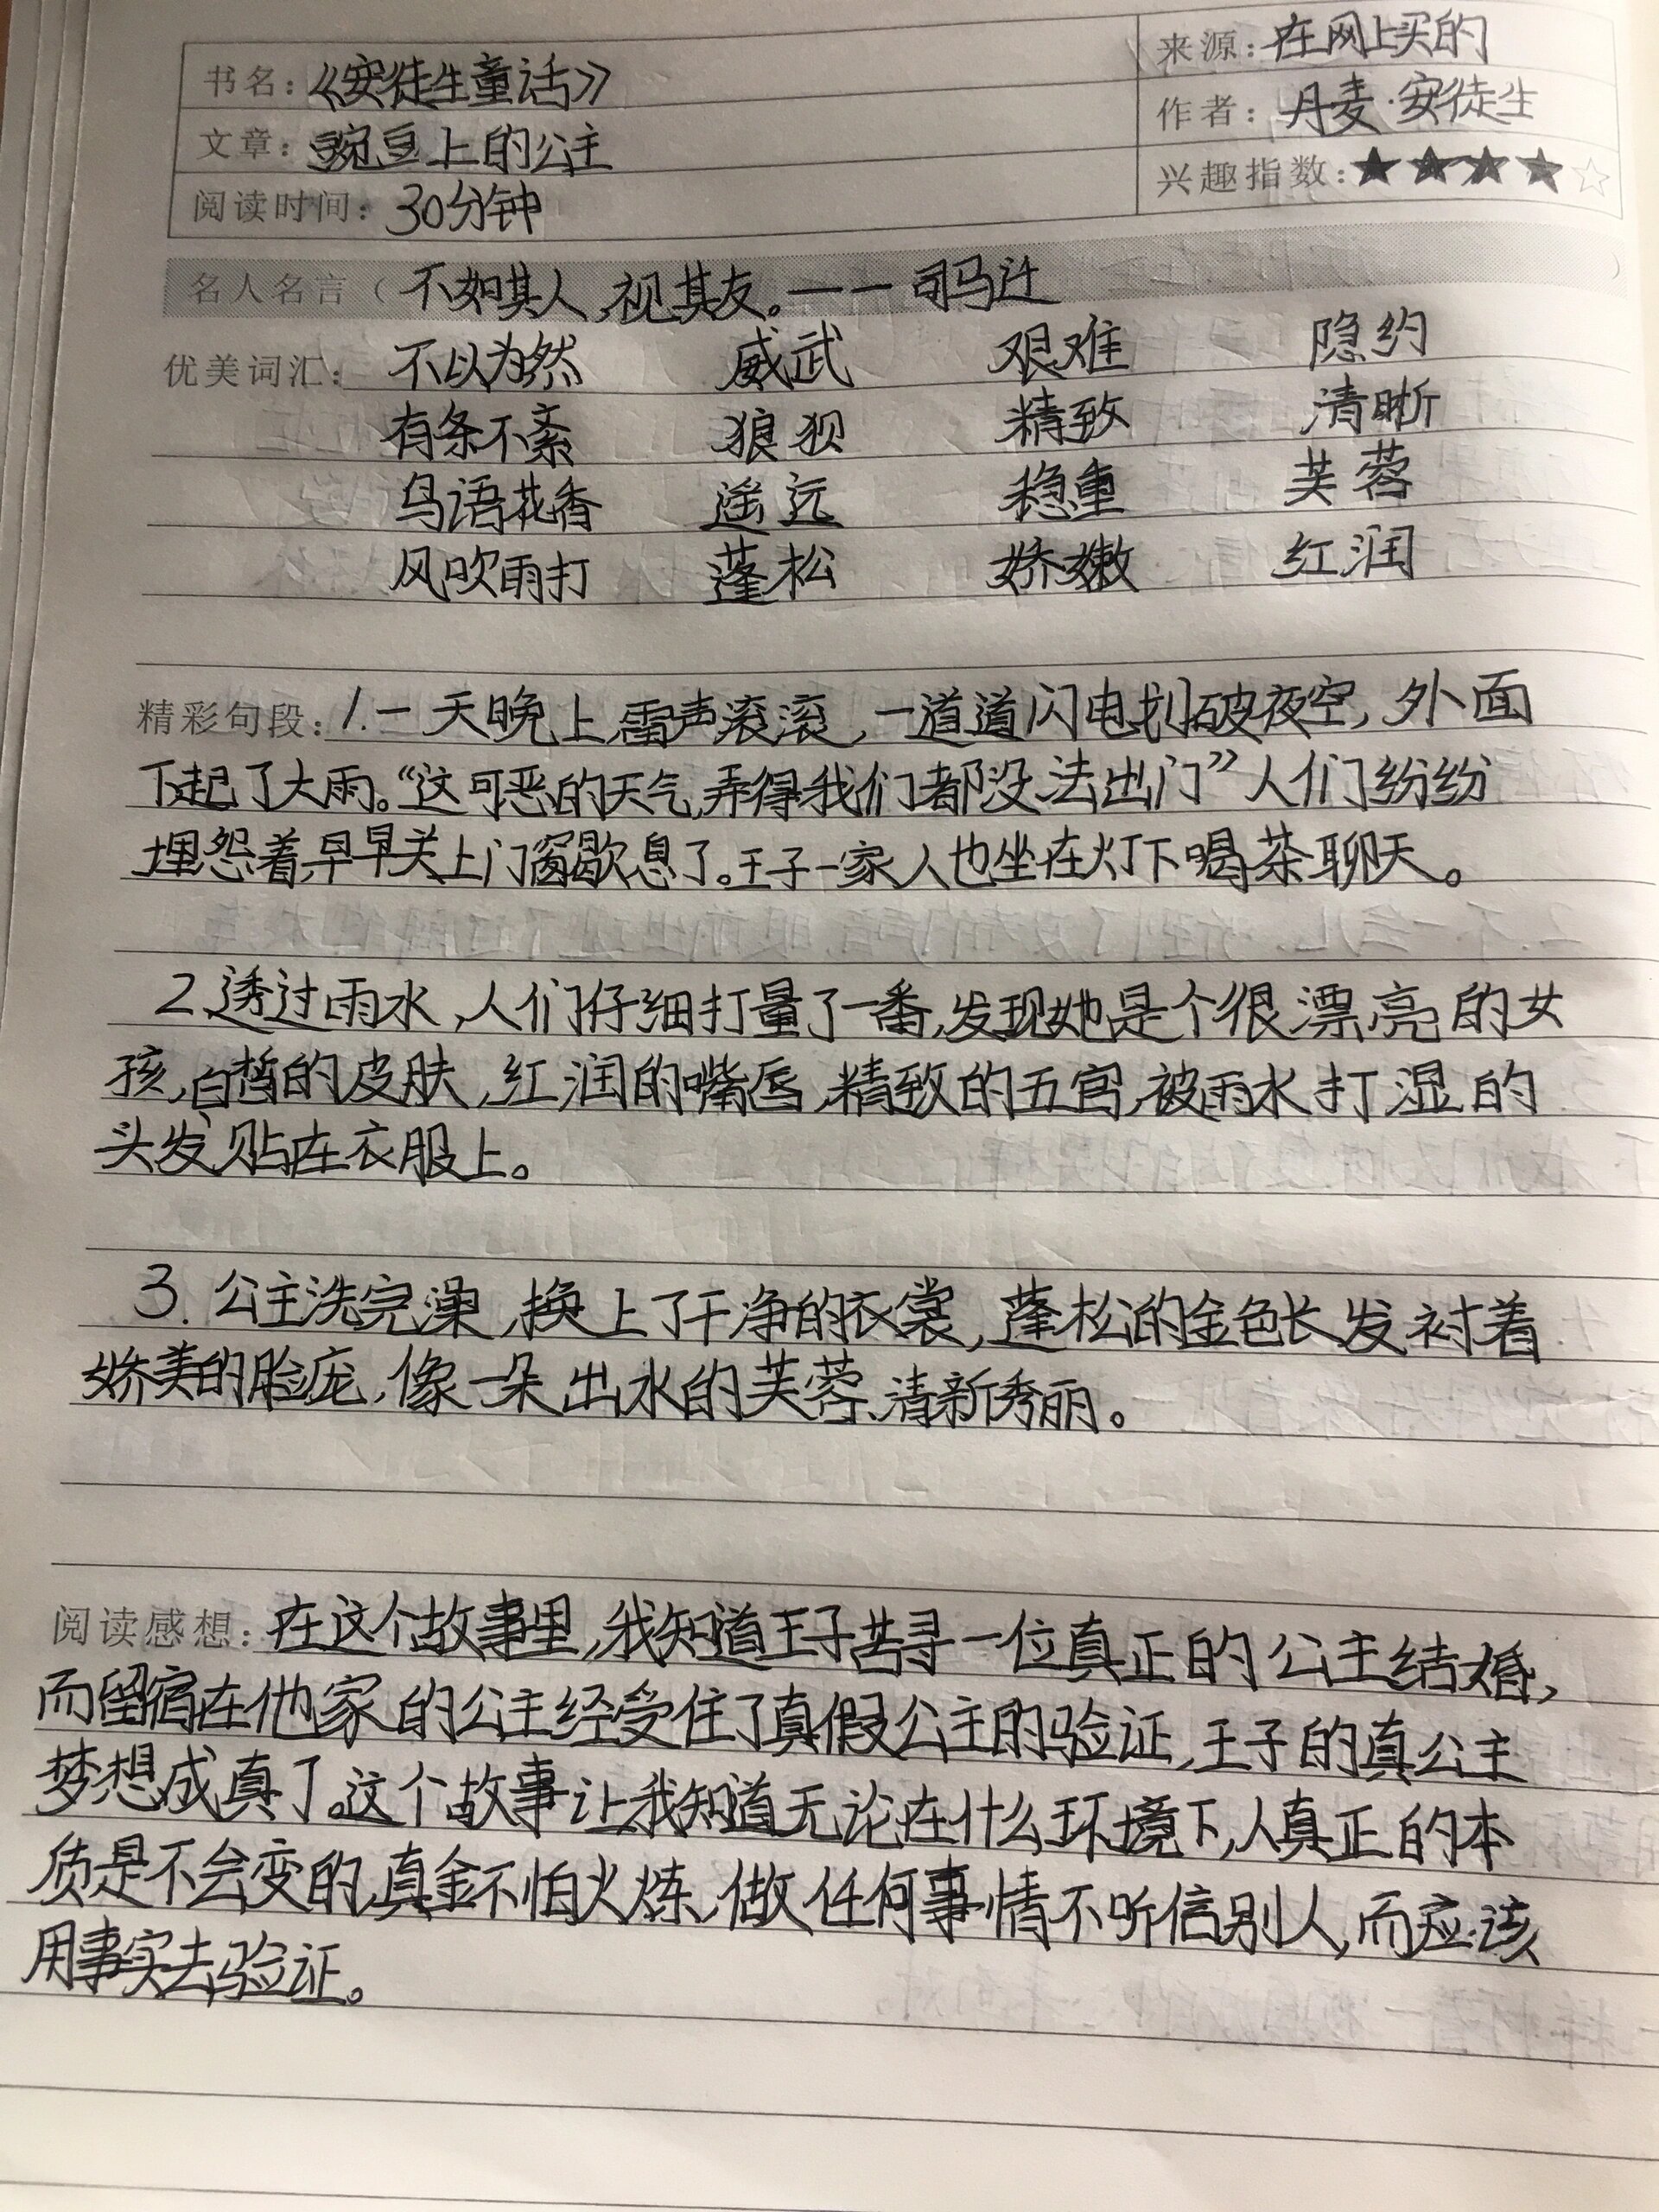 书名：《安徒生童话》
来源：在网上买的
文章：豌豆上的公主
作者：丹麦·安徒生
阅读时间：30分钟
兴趣指数：★★★★☆
名人名言（不如其人，视其友。——司马迁）
优美词汇：不以为然 威武 艰难 隐约
有条不紊 狼狈 精致 清晰
鸟语花香 遥远 稳重 芙蓉
风吹雨打 蓬松 娇嫩 红润
精彩句段：1.一天晚上，雷声滚滚，一道道闪电划破夜空，外面
下起了大雨。“这可恶的天气，弄得我们都没法出门”人们纷纷
埋怨着，早早关上门窗歇息了。王子一家人也坐在灯下喝茶聊天。
2、透过雨水，人们仔细打量了一番，发现她是个很漂亮的女
孩，白皙的皮肤，红润的嘴唇，精致的五官，被雨水打湿的
头发，贴在衣服上。
3.公主洗完澡，换上了干净的衣裳，蓬松的金色长发衬着
娇美的脸庞，像一朵出水的芙蓉，清新秀丽。
阅读感想：在这个故事里，我知道王子苦寻一位真正的公主结婚，
而留宿在他家的公主经受住了真假公主的验证，王子的真公主
梦想成真了。这个故事让我知道无论在什么环境下，人真正的本
质是不会变的，真金不怕火炼，做任何事情不听信别人，而应该
用事实去验证。